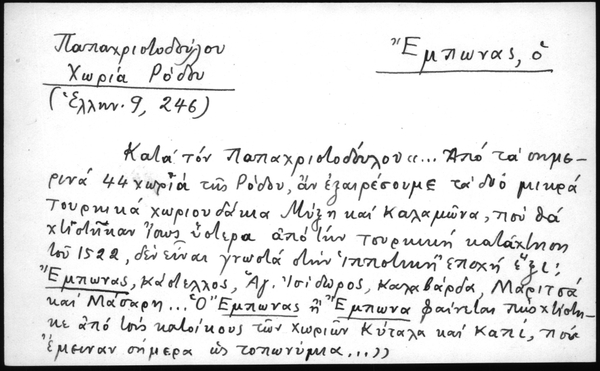 Παπαχριστοδούλου
Χωριά Ρόδου
(Ἑλλην. 9, 246)
Ἔμπωνας, ὁ
Κατά τόν Παπαχριστοδούλου «... Ἀπό τά σημε-
ρινά 44 χωριά τῆς Ρόδου, ἄν ἐξαιρέσουμε τά δυό μικρά
τουρκικά χωριουδάκια Μύξη καί Καλαμῶνα, πού θά
χτίστηκαν ἴσως ὕστερα ἀπό τήν τουρκική κατάχτηση
τοῦ 1522, δέν εἶναι γνωστά στήν ἱπποτική ἐποχή ἕξι;
Ἔμπωνας, Κάστελλος, Ἅγ. Ἰσίδωρος, Καλαβάρδα, Μαριτσά
καί Μάσαρη... Ὁ Ἔμπωνας ἤ Ἔμπωνα φαίνεται πώς χτίστη-
κε ἀπό τούς κατοίκους τῶν χωριῶν Κύταλα καί Καπί, πού
ἔμειναν σήμερα ὡς τοπωνύμια...»